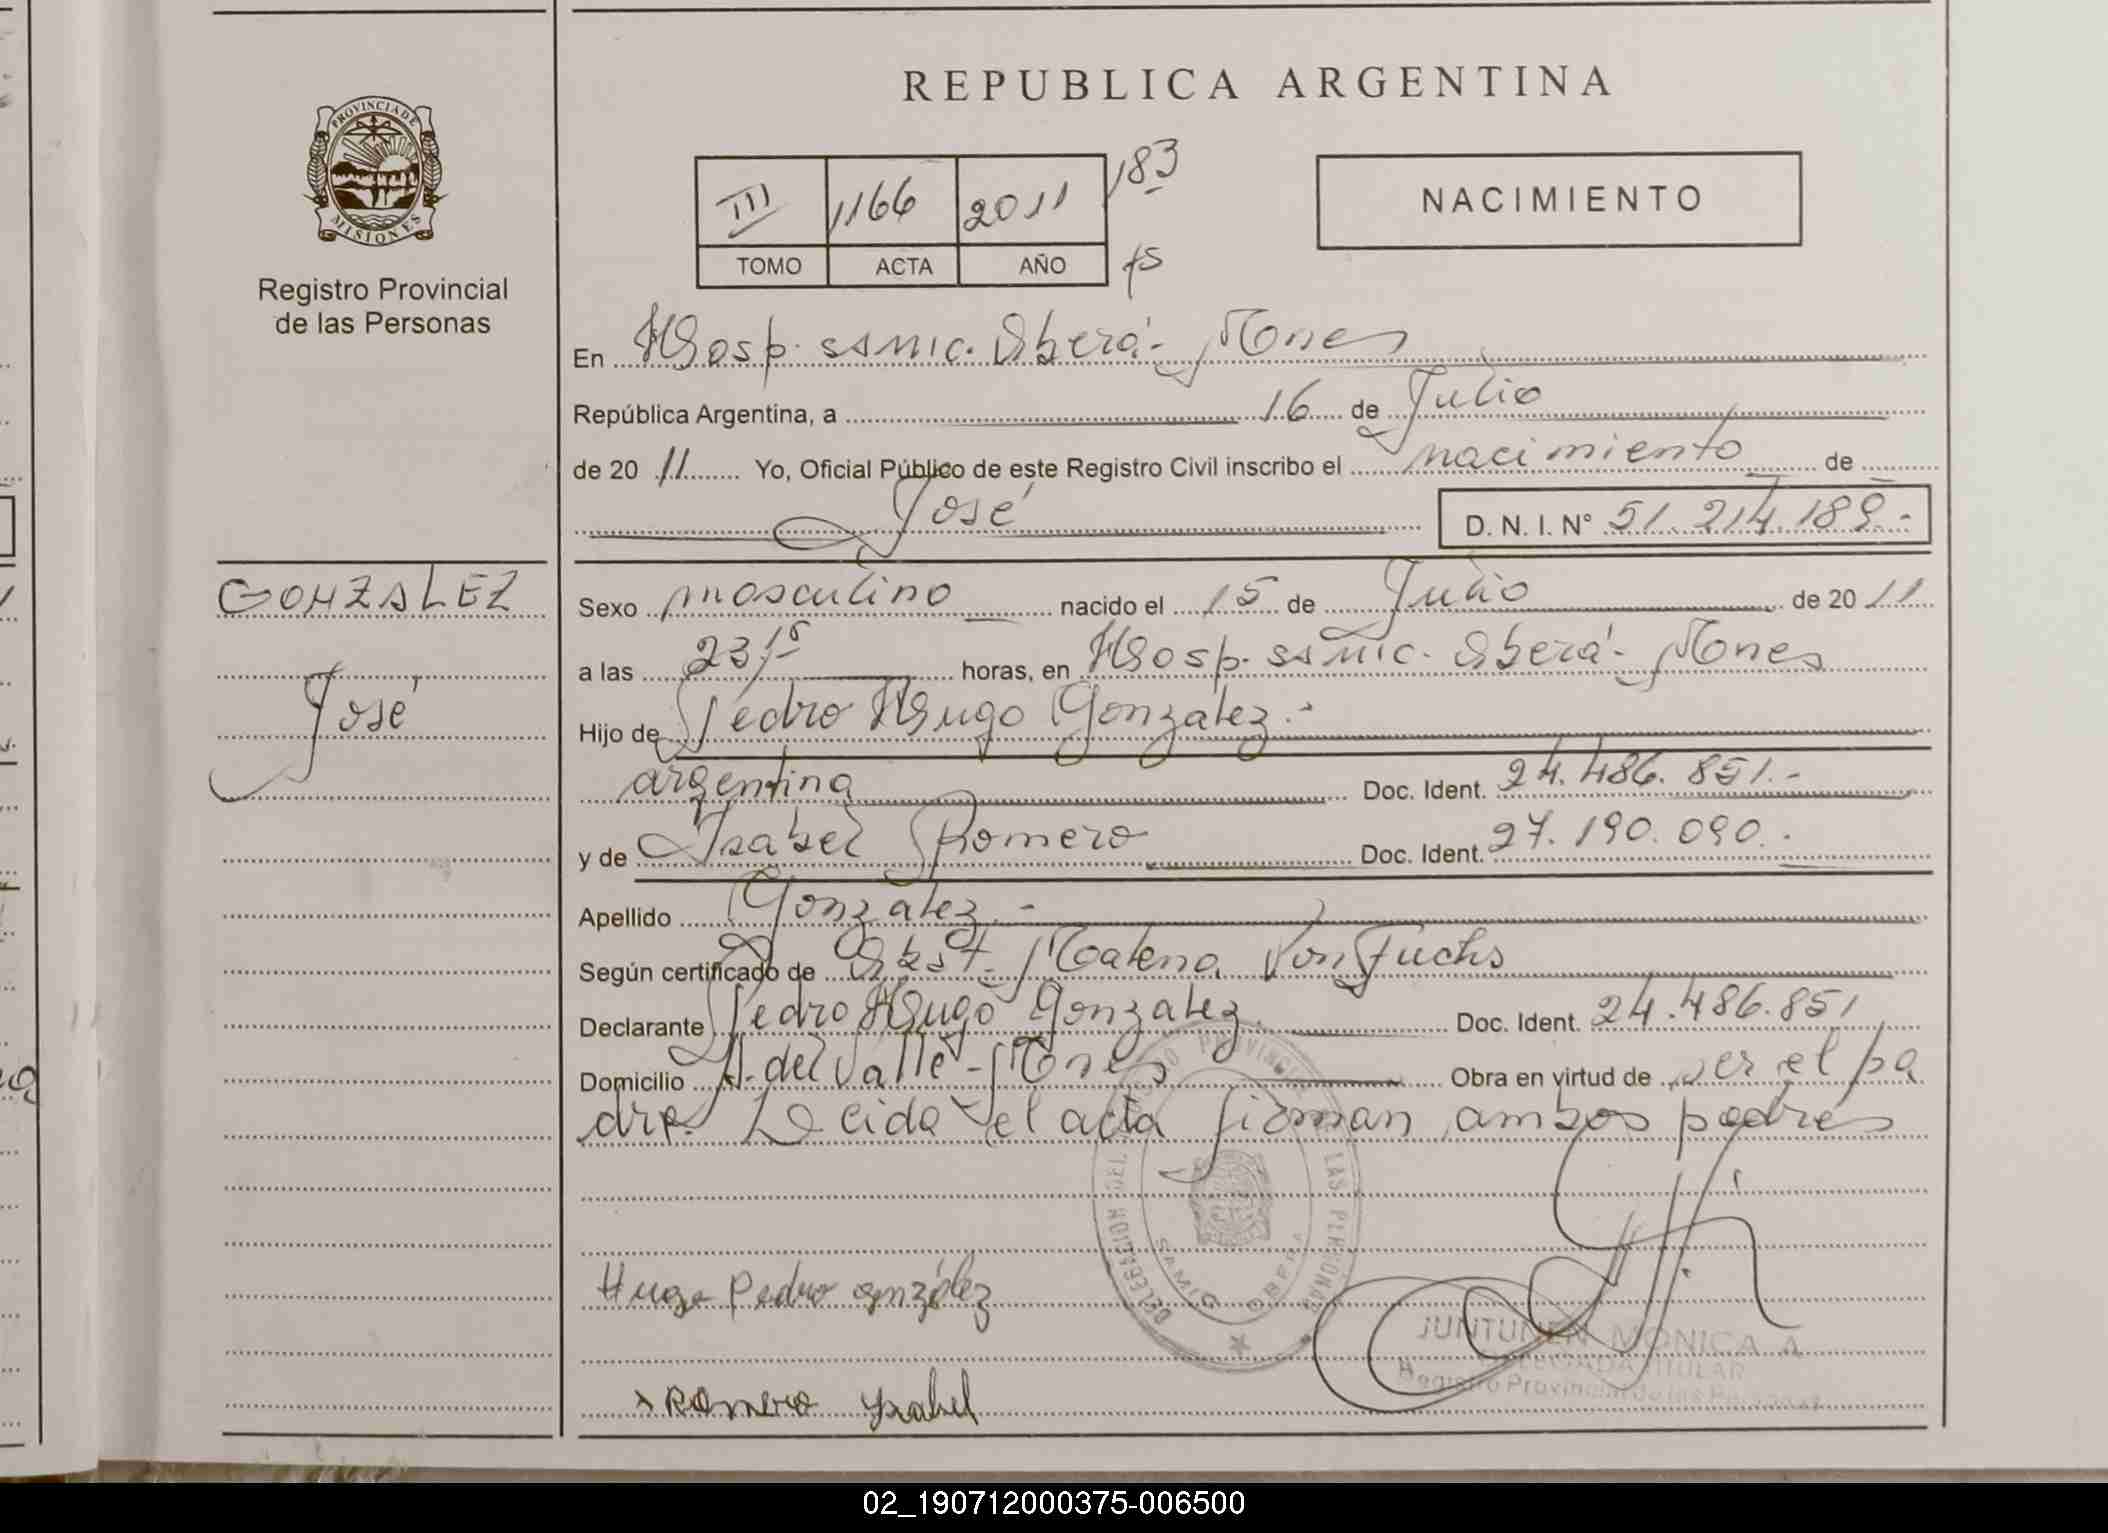 REPUBLICA ARGENTINA
PROVINCIA DE
MISIONES
Registro Provincial
de las Personas
III 1166 2011 183
TOMO ACTA AÑO
NACIMIENTO
En Hosp. samic. Oberá - Mones
República Argentina, a 16 de Julio
de 20 11 Yo, Oficial Público de este Registro Civil inscribo el nacimiento de
José D. N. I. N° 51.214.189.-
GONZALEZ
José
Sexo masculino nacido el 15 de Julio de 20 11
a las 23,15 horas, en Hosp. samic. Oberá - Mones
Hijo de Pedro Hugo Gonzalez.-
argentina Doc. Ident. 24.486.851.-
y de Isabel Romero Doc. Ident. 27.190.090.-
Apellido Gonzalez.-
Según certificado de Obst. Malena Von Fuchs
Declarante Pedro Hugo Gonzalez Doc. Ident. 24.486.851
Domicilio A. del Valle - Mones Obra en virtud de ser el pa
dre. Leida el acta firman ambos padres
DELEGACION DEL REGISTRO PROVINCIAL DE LAS PERSONAS
SAMIC OBERA
Hugo Pedro González
Romero Ysabel
JUNTUNEN MONICA A
DELEGADA TITULAR
Registro Provincial de las Personas
02_190712000375-006500